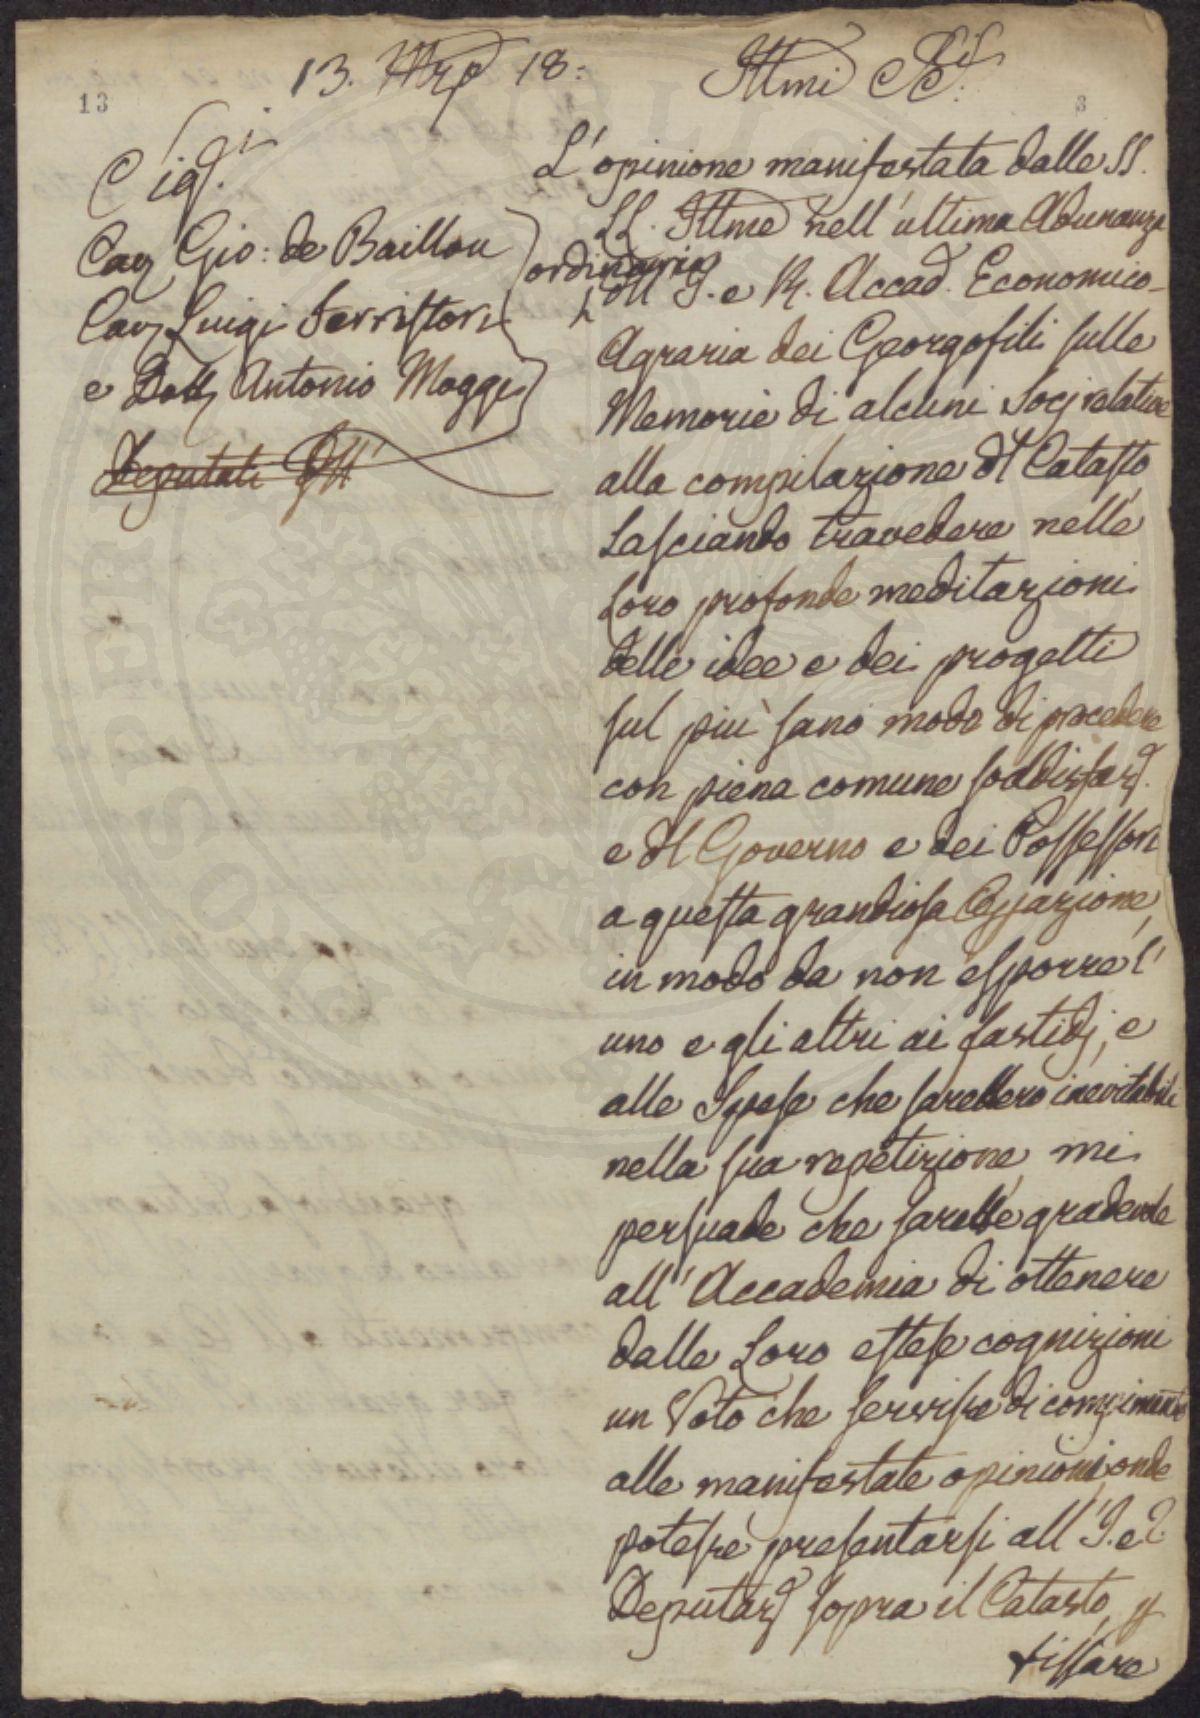 13. 18:
Illmi SSri
13
3
Sigri
Cav Gio: de Baillou
Cav Luigi Serristori
e Dott Antonio Maggi
Deputati dell'
L'opinione manifestata dalle SS.
LL. Illme nell'ultima Adunanza
ordinaria
dell' I. e R. Accad. Economico-
Agraria dei Georgofili sulle
Memorie di alcuni Socj relative
alla compilazione del Catasto
Lasciando travedere nelle
Loro profonde meditazioni
delle idee e dei progetti
sul più sano modo di procedere
con piena comune soddisfaz.
e del Governo e dei Possessori
a questa grandiosa
in modo da non esporre l'
uno e gli altri ai fastidj, e
alle Spese che sarebbero inevitabili
nella sua repetizione, mi
persuade che sarebbe gradevole
all'Accademia di ottenere
dalle Loro estese cognizioni
un Voto che servisse di compimento
alle manifestate opinioni, onde
potesse presentarsi all'I. e R.
Deputaz sopra il Catasto, p
fissare